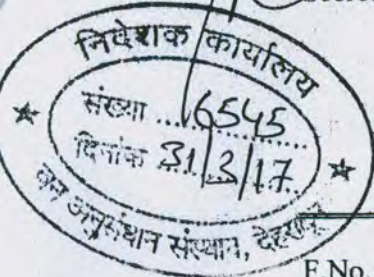 निदेशक कार्यालय
संख्या ...6545
दिनांक 31/3/17
वन अनुसंधान संस्थान, देहरादून
F.No.